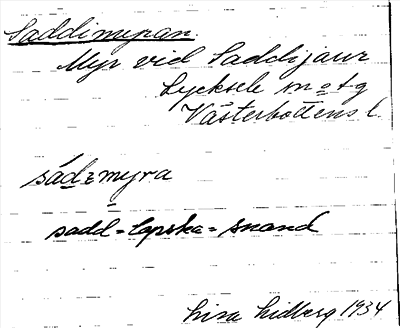 Saddimyran.
Myr vid Saddijaur
Lycksele sn o t g
Västerbottens l.
sádzmyra
sadd = lapska = snand
Lisa Lidberg 1934